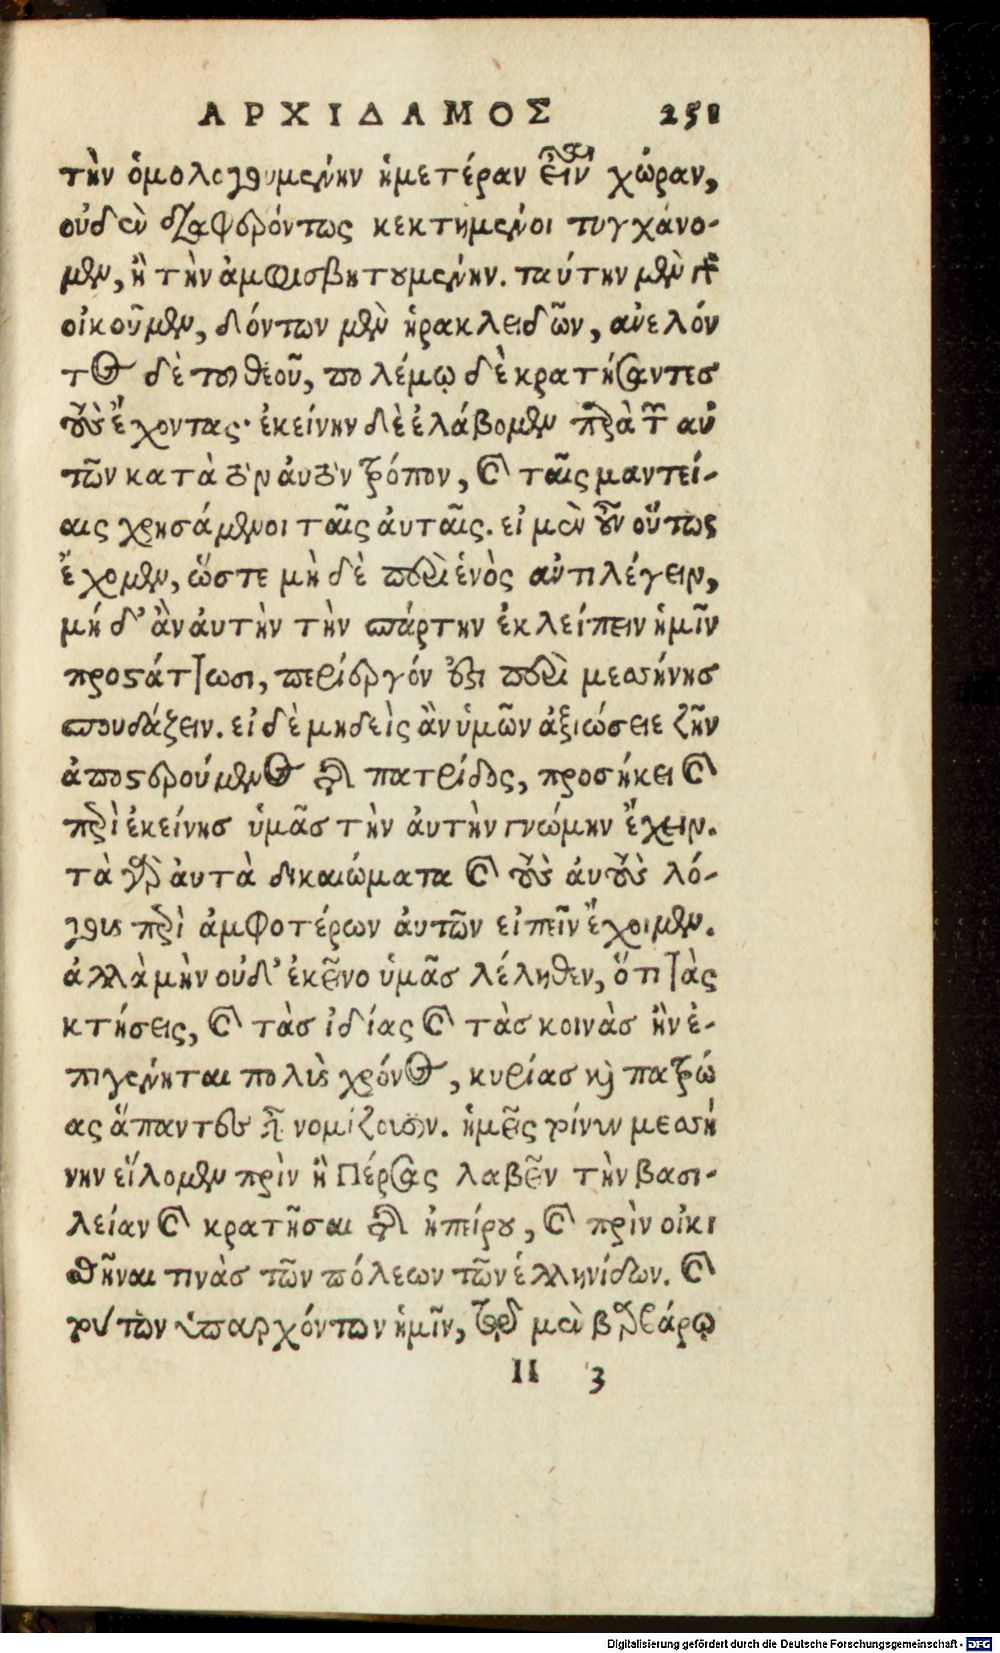 ΑΡΧΙΔΑΜΟΣ 251
τὴν ὁμολογουμένην ἡμετέραν εἶναι χώραν,
οὐδὲν διαφερόντως κεκτημένοι τυγχάνο-
μεν, ἢ τὴν ἀμφισβητουμένην. ταύτην μὲν γὰρ
οἰκοῦμεν, δόντων μὲν ἡρακλειδῶν, ἀνελόν
τος δὲ τοῦ θεοῦ, πολέμῳ δὲ κρατήσαντες
τοὺς ἔχοντας· ἐκείνην δὲ ἐλάβομεν παρὰ τῶν αὐ
τῶν κατὰ τὸν αὐτὸν τρόπον, καὶ ταῖς μαντεί-
αις χρησάμενοι ταῖς αὐταῖς. εἰ μὲν οὖν οὕτως
ἔχομεν, ὥστε μὴ δὲ περὶ ἑνὸς ἀντιλέγειν,
μή δ' ἂν αὐτὴν τὴν σπάρτην ἐκλείπειν ἡμῖν
προστάττωσι, περίεργόν ἐστι περὶ μεσσήνης
σπουδάζειν. εἰ δὲ μηδεὶς ἂν ὑμῶν ἀξιώσειε ζῆν
ἀποστερούμενος τῆς πατρίδος, προσήκει καὶ
περὶ ἐκείνης ὑμᾶς τὴν αὐτὴν γνώμην ἔχειν.
τὰ γὰρ αὐτὰ δικαιώματα καὶ τοὺς αὐτοὺς λό-
γους περὶ ἀμφοτέρων αὐτῶν εἰπεῖν ἔχοιμεν.
ἀλλὰ μὴν οὐδ' ἐκεῖνο ὑμᾶς λέληθεν, ὅτι τὰς
κτήσεις, καὶ τὰς ἰδίας καὶ τὰς κοινὰς ἢν ἐ-
πιγένηται πολὺς χρόνος, κυρίας καὶ πατρώ
ας ἅπαντες εἶναι νομίζουσιν. ἡμεῖς τοίνυν μεσσή
νην εἵλομεν πρὶν ἢ Πέρσας λαβεῖν τὴν βασι-
λείαν καὶ κρατῆσαι τῆς ἠπείρου, καὶ πρὶν οἰκι
σθῆναι τινὰς τῶν πόλεων τῶν ἑλληνίδων. καὶ
τούτων ὑπαρχόντων ἡμῖν, τῷ μὲν βαρβάρῳ
II 3
Digitalisierung gefördert durch die Deutsche Forschungsgemeinschaft - DFG